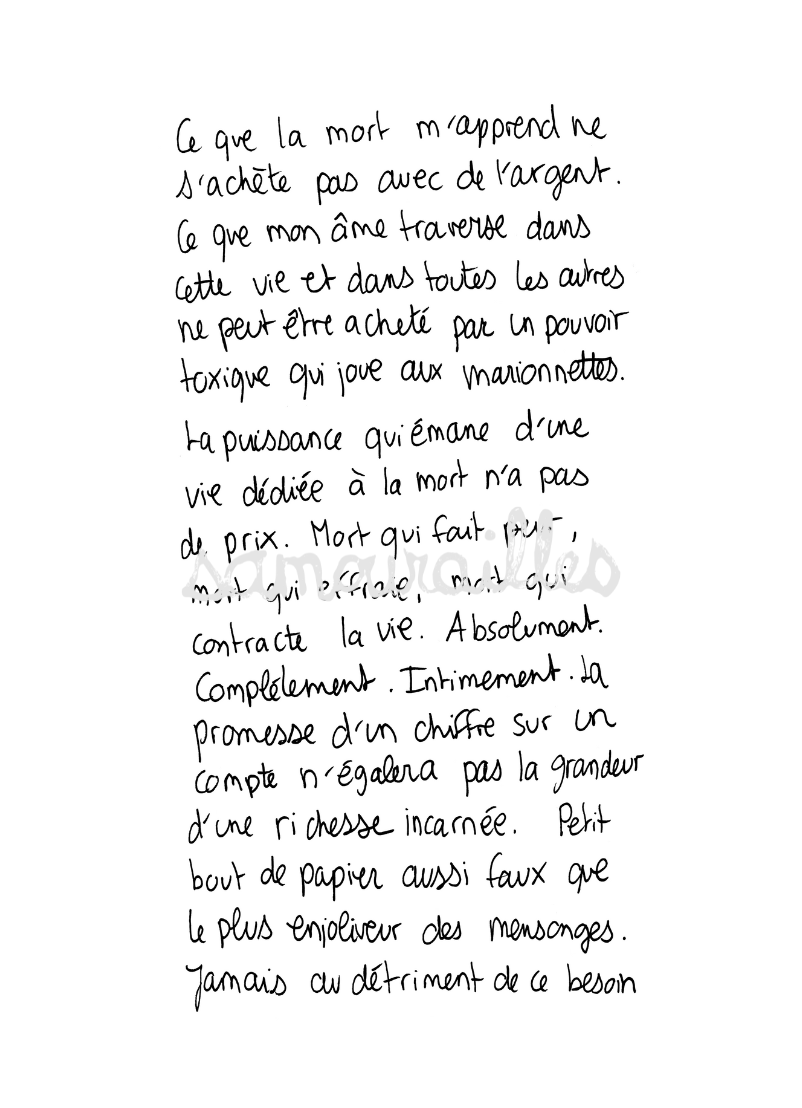 Ce que la mort m'apprend ne
s'achête pas avec de l'argent.
Ce que mon âme traverse dans
cette vie et dans toutes les autres
ne peut être acheté par un pouvoir
toxique qui joue aux marionnettes.
La puissance qui émane d'une
vie dédiée à la mort n'a pas
de prix. Mort qui fait peur,
samourailles
mort qui effraie, mort qui
contracte la vie. Absolument.
Complétement. Intimement. La
promesse d'un chiffre sur un
compte n'égalera pas la grandeur
d'une richesse incarnée. Petit
bout de papier aussi faux que
le plus enjoliveur des mensonges.
Jamais au détriment de ce besoin